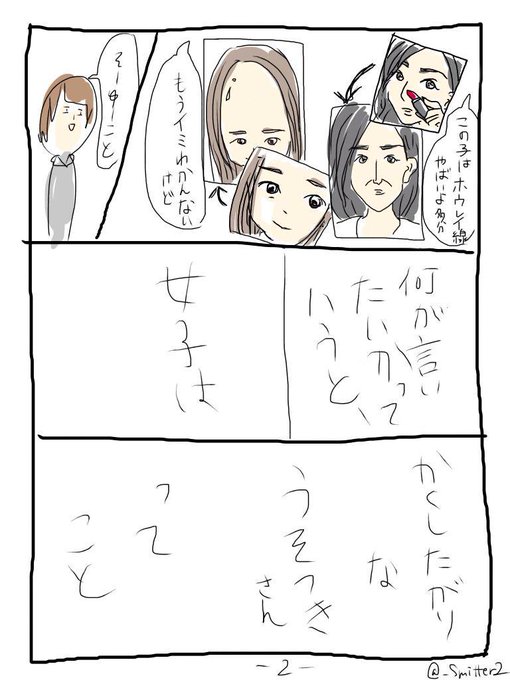 この子はホウレイ線
やばいよ多分
もうイミわかんない
けど
そーゆーこと
何が言い
たいかって
いうと、
女子は
かくしたがり
な
うそつき
さん
って
こと
-2-
@_Smitter2